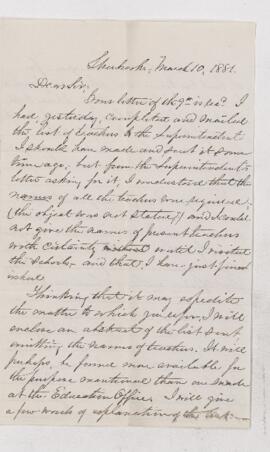 Sherbrooke, March 10, 1881.
Dear Sir,
Your letter of the 9th is rec'd. I
had, yesterday, completed and mailed
the list of teachers to the Superintendent
I should have made and sent it some
time ago, but from the Superintendent's
letter asking for it, I understood that the
names of all the teachers were required,
(the object was not stated,) and I could
not give the names of present teachers
with certainty until I visited
the schools, and that I have just finished
Thinking that it may expedite
the matter to which you refer, I will
enclose an abstract of the list sent
omitting the names of teachers. It will
perhaps, be found more available for
the purpose mentioned than one made
at the Education Office. I will give
a few words of explanation of the